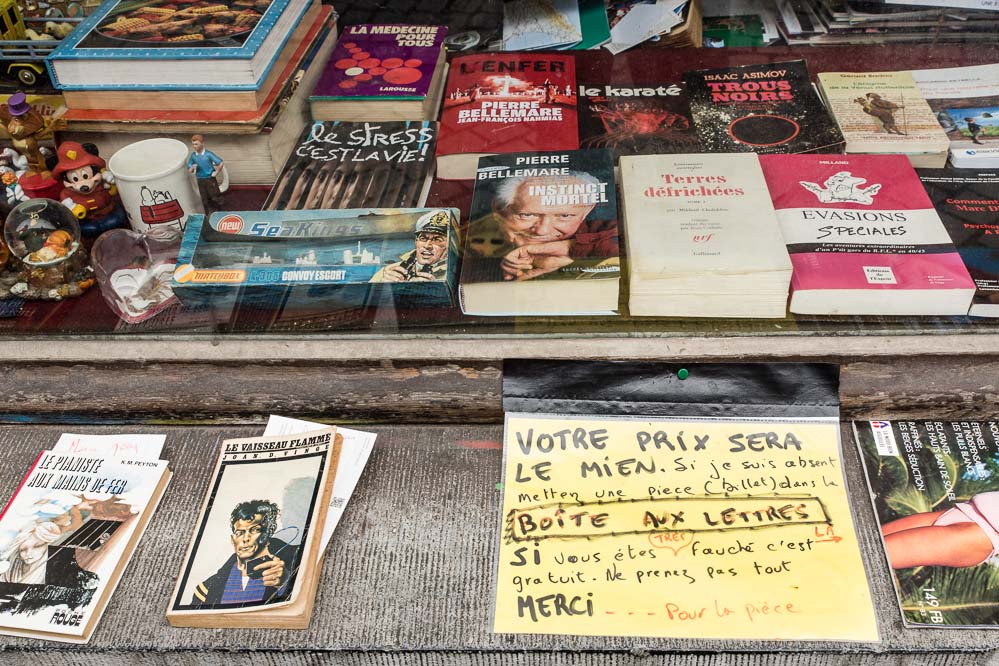 LA MEDECINE
POUR
TOUS
LAROUSSE
L'ENFER
PIERRE
BELLEMARE
JEAN-FRANÇOIS NAHMIAS
le karaté
ISAAC ASIMOV
TROUS
NOIRS
le STRESS
C'EST LA VIE!
new
Sea Kings
MATCHBOX
K-300 CONVOY ESCORT
PIERRE
BELLEMARE
INSTINCT
MORTEL
Terres
défrichées
TOME I
nrf
Gallimard
MILLAND
EVASIONS
SPECIALES
Les aventures extraordinaires
d'un P'tit gars du R.F.L. en 40/45
LE PIANISTE
AUX MAINS DE FER
K.M. PEYTON
ROUGE
LE VAISSEAU FLAMME
JOAN. D. VINGE
VOTRE PRIX SERA
LE MIEN. Si je suis absent
mettez une pièce (billet) dans la
BOÎTE AUX LETTRES
LA
SI vous êtes TRES fauché c'est
gratuit. Ne prenez pas tout
MERCI - - - Pour la pièce
149 FB